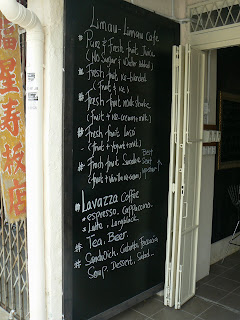 Limau-Limau Cafe
* Pure & Fresh Fruit Juice
(No Sugar & Water Added)
* Fresh fruit ice-blended
(fruit & ice)
* Fresh fruit milk shake
(fruit + ice-cream + milk)
* Fresh fruit Lassi
(fruit + yogurt + milk)
* Fresh fruit Sundae
(fruit + vanilla ice-cream)
Best
Seat
upstair
* Lavazza Coffee
espresso, Cappuccino,
Latte, Longblack.
* Tea, Beer.
* Sandwich, Ciabatta, Foccacia
Soup, Dessert, Salad...
福
星
壽